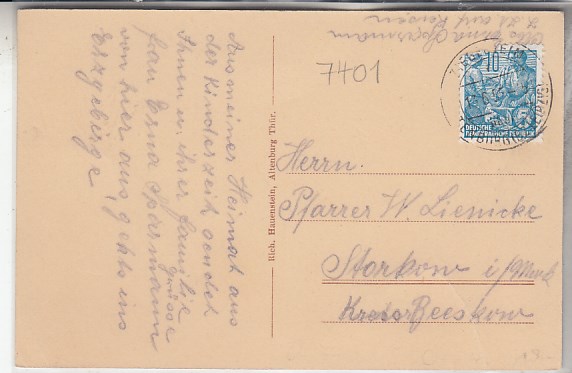 Aus meiner Heimat aus
der Kinderzeit sendet
Ihnen u. ihrer Familie
Grüsse
Frau Erna Sparmann
von hier aus gehts ins
Erzgebirge.
Rich. Hauenstein, Altenburg Thür.
7401
10
DEUTSCHE
DEMOKRATISCHE REPUBLIK
Herrn.
Pfarrer W. Lienicke
Storkow i/Mark
Kreis Beeskow